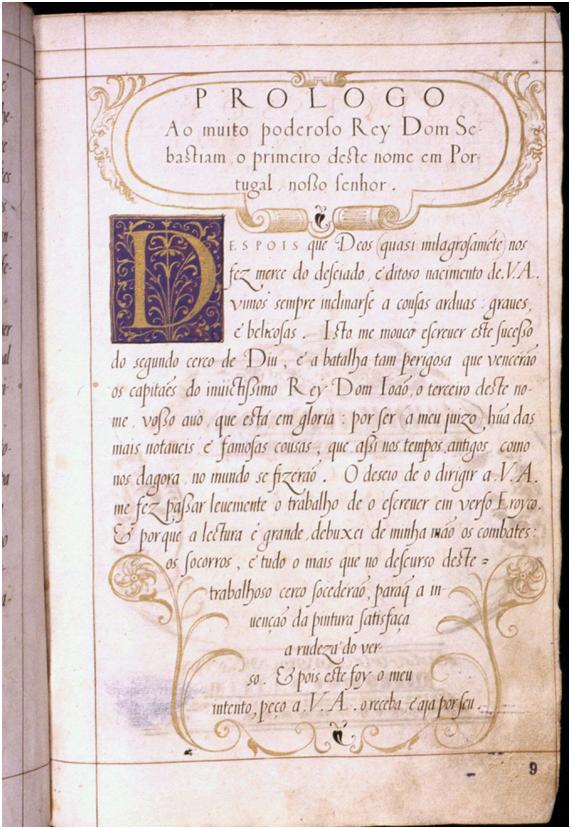 PROLOGO
Ao muito poderoſo Rey Dom Se-
baſtiam, o primeiro deſte nome em Por-
tugal, noſſo ſenhor.
DESPOIS que Deos (quaſi milagroſamẽte) nos
fez merce do deſeiado, e ditoso nacimento de. V.A.
vimos sempre inclinarſe a couſas arduas: graues,
e belicosas. Iſto me moueo eſcreuer eſte ſuceſſo
do segundo cerco de Diu, e a batalha tam perigosa que vencerão
os capitães do inuictiſſimo Rey Dom Ioão, o terceiro deſte no-
me, voſſo auo, que eſtá em gloria: por ſer a meu juizo, hũa das
mais notaueis e famoſas couſas, que aſſi nos tempos antigos, como
nos dagora, no mundo se fizerão. O deseio de o dirigir a V.A.
me fez paſſar leuemente o trabalho de o eſcreuer em verſo Eroyco.
& porque a lectura é grande, debuxei de minha mão os combates:
os socorros, e tudo o mais que no deſcurso deſte=
trabalhoso cerco ſocederão, paraq̃ a in-
uenção da pintura ſatiſfaça
a rudeza do ver-
so. & pois eſte foy o meu
intento, peço a. V. A. o receba e aja por ſeu.
9